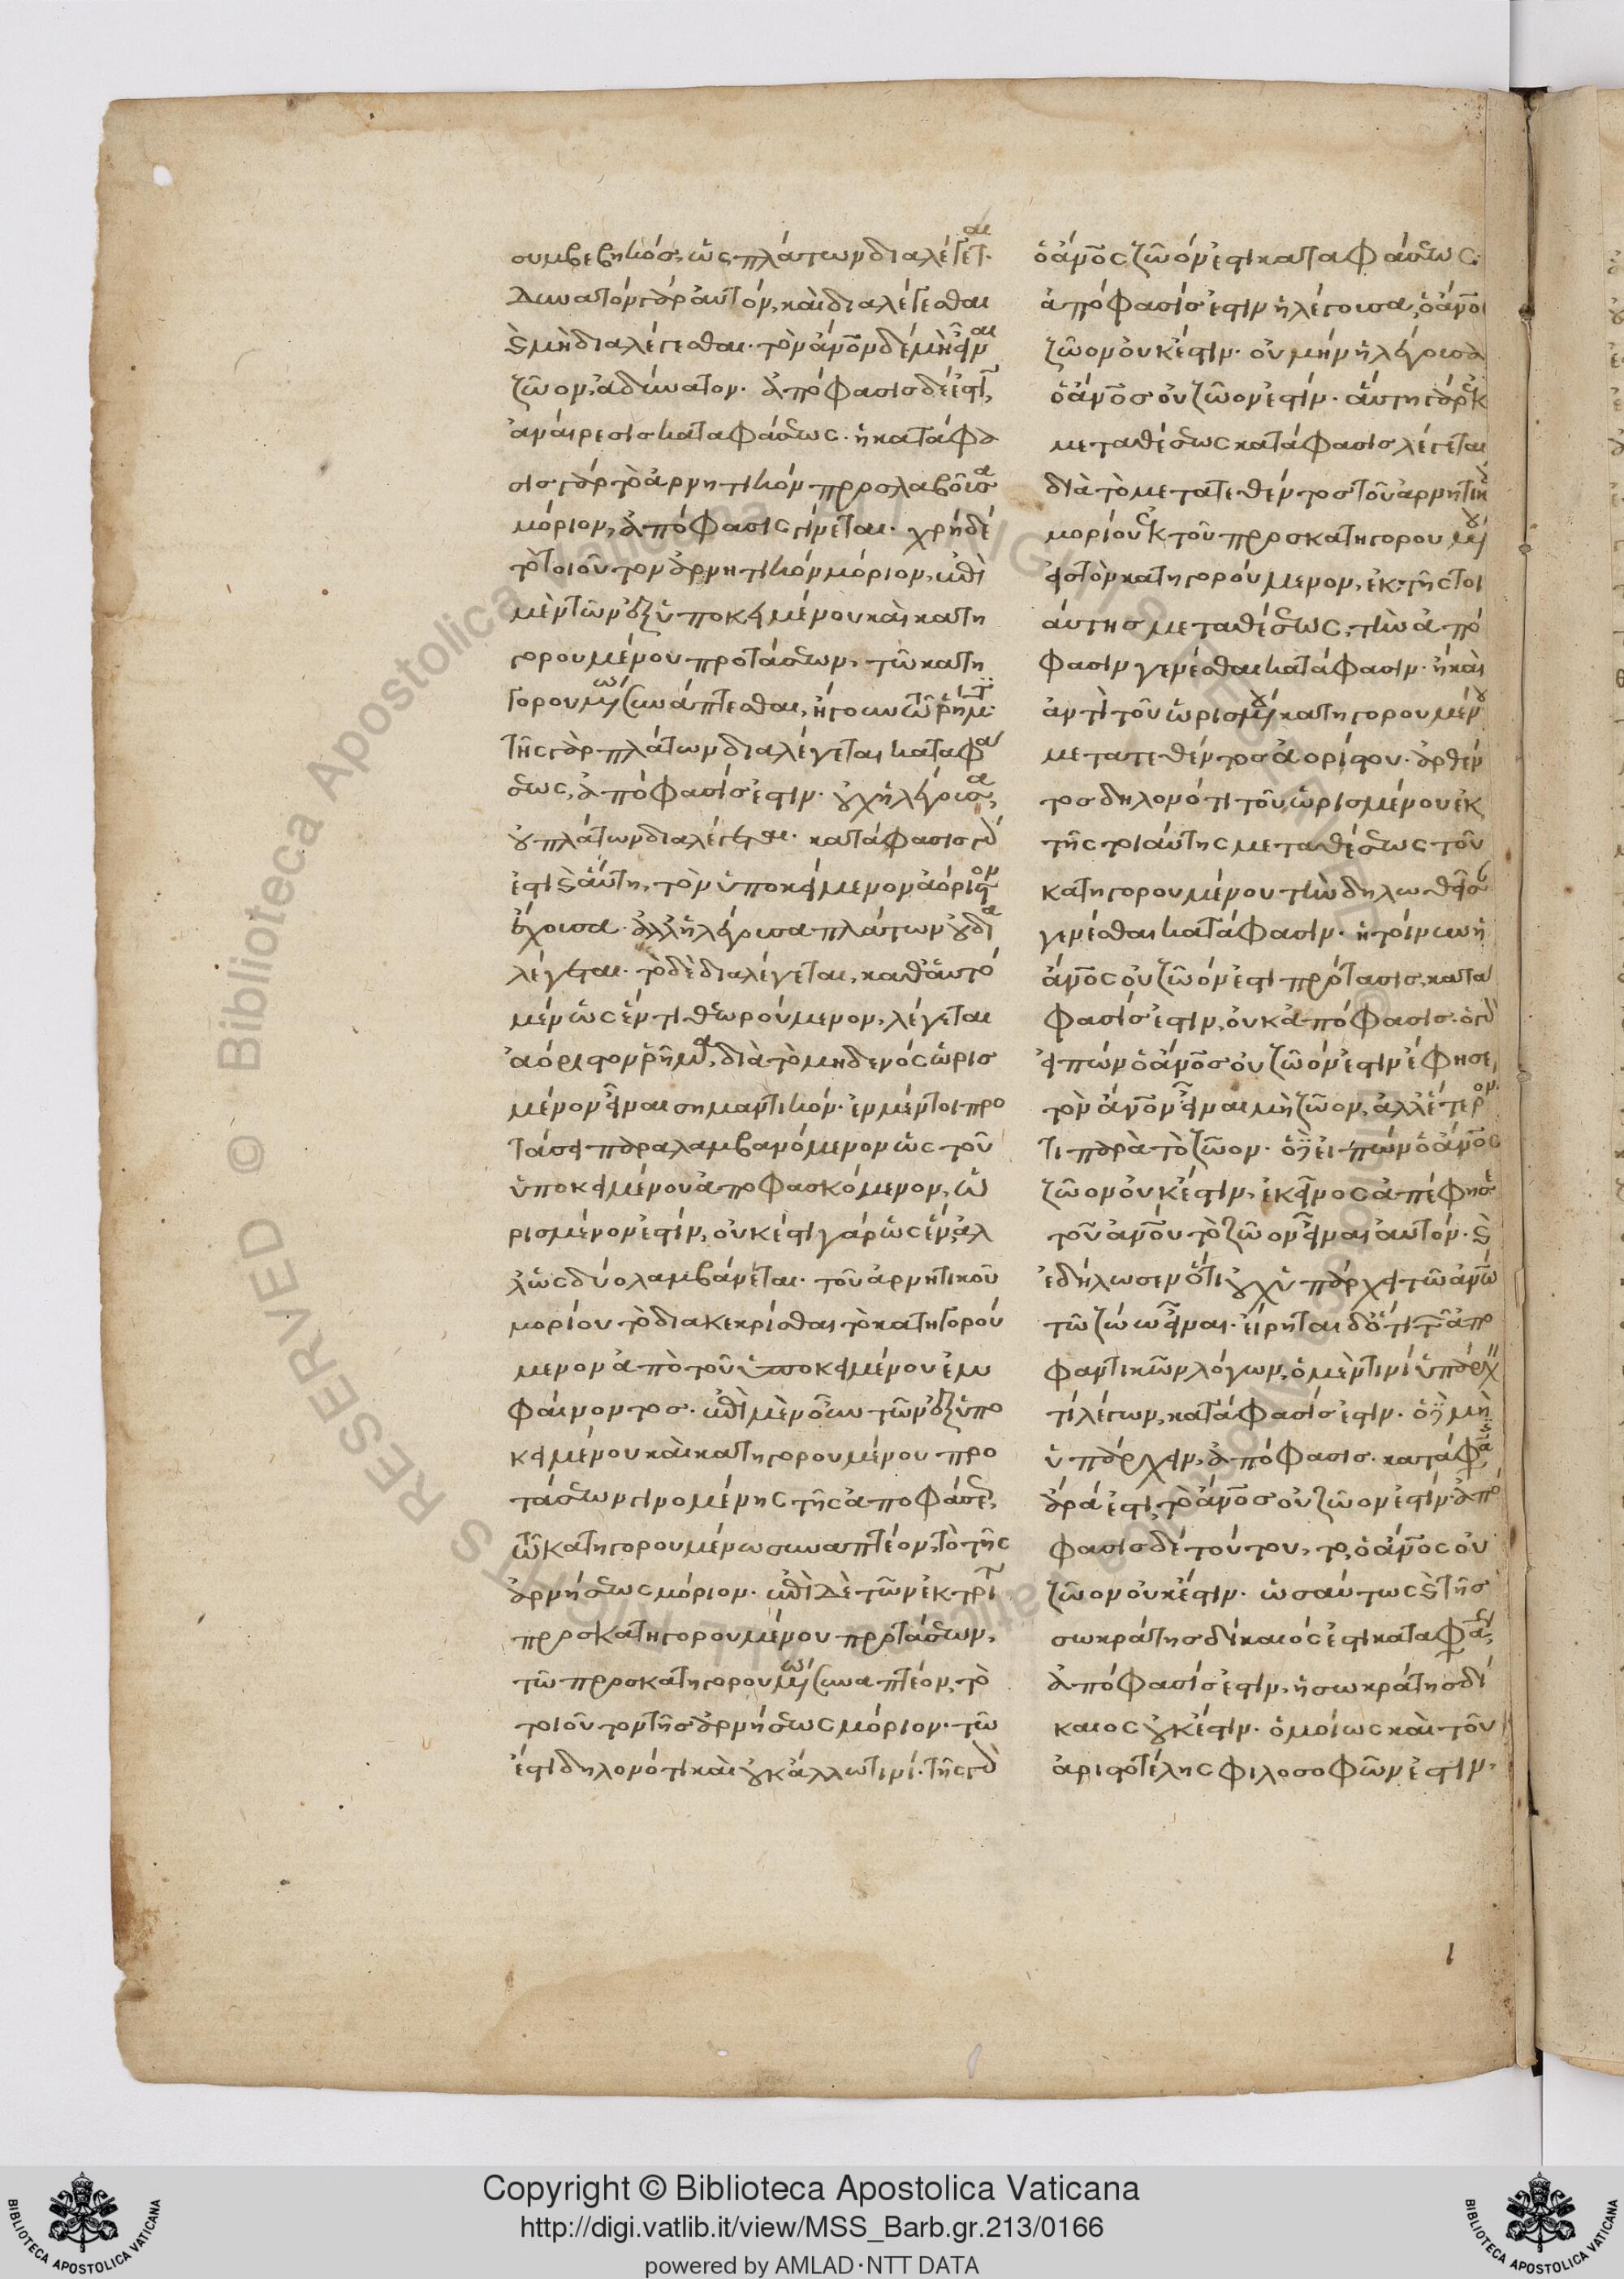 συμβεβηκός, ὡς πλάτων διαλέγεται·
δυνατὸν γὰρ αὐτὸν, καὶ διαλέγεσθαι
καὶ μὴ διαλέγεσθαι· τὸν ἄνον δὲ μὴ εἶναι
ζῶον, ἀδύνατον· ἀπόφασις δέ ἐστιν,
ἀναίρεσις καταφάσεως· ἡ κατάφα
σις γὰρ τὸ ἀρνητικὸν προσλαβοῦσα
μόριον, ἀπόφασις γίνεται· χρὴ δὲ
τὸ τοιοῦτον ἀρνητικὸν μόριον, ἐπὶ
μὲν τῶν ἐξ ὑποκειμένου καὶ κατη
γορουμένου προτάσεων, τῶ κατη
γορουμένω συνάπτεσθαι, ἤγουν τῶ ῥήματι·
τῆς γὰρ πλάτων διαλέγεται καταφά
σεως, ἀπόφασίς ἐστιν· οὐχ ἡ λέγουσα,
οὐ πλάτων διαλέγεται· κατάφασις γάρ
ἐστι καὶ αὕτη, τὸν ὑποκείμενον ἀόριστον
ἔχουσα· ἀλλ' ἡ λέγουσα πλάτων οὐ δια
λέγεται· τὸ δὲ διαλέγεται, καθ' αὑτὸ
μὲν ὡς ἕν τι θεωρούμενον, λέγεται
ἀόριστον ῥῆμα, διὰ τὸ μηδενὸς ὡρισ
μένον εἶναι σημαντικόν· ἐν μέντοι προ
τάσει παραλαμβανόμενον ὡς τοῦ
ὑποκειμένου ἀποφασκόμενον, ὡ
ρισμένον ἐστὶν, οὐκέτι γὰρ ὡς ἕν, ἀλ
λ' ὡς δύο λαμβάνεται· τοῦ ἀρνητικοῦ
μορίου τὸ διακεκρίσθαι τὸ κατηγορού
μενον ἀπὸ τοῦ ὑποκειμένου ἐμ
φαίνοντος· ἐπὶ μὲν οὖν τῶν ἐξ ὑπο
κειμένου καὶ κατηγορουμένου προ
τάσεων γινομένης τῆς ἀποφάσεως,
τῶ κατηγορουμένω συναπτέον, τὸ τῆς
ἀρνήσεως μόριον· ἐπὶ δὲ τῶν ἐκ τρίτου
προσκατηγορουμένου προτάσεων,
τῶ προσκατηγορουμένω συναπτέον, τὸ
τοιοῦτον τῆς ἀρνήσεως μόριον· τῶ
ἔστι δηλονότι καὶ οὐκ ἄλλω τινί· τῆς γὰρ
ὁ ἄνος ζῶόν ἐστι καταφάσεως·
ἀπόφασίς ἐστιν ἡ λέγουσα, ὁ ἄνος
ζῶον οὐκ ἔστιν· οὐ μὴν ἡ λέγουσα
ὁ ἄνος οὐ ζῶον ἐστίν· αὕτη γὰρ ἐκ
μεταθέσεως κατάφασις λέγεται
διὰ τὸ μετατεθέντος τοῦ ἀρνητικοῦ
μορίου ἐκ τοῦ προσκατηγορουμένου
εἰς τὸν κατηγορούμενον, ἐκ τῆς τοι
αύτης μεταθέσεως, τὴν ἀπό
φασιν γενέσθαι κατάφασιν· ἢ καὶ
ἀντὶ τοῦ ὡρισμένου κατηγορουμένου
μετατεθέντος ἀορίστου· ἀρθέν
τος δηλονότι τοῦ ὡρισμένου ἐκ
τῆς τοιαύτης μεταθέσεως τοῦ
κατηγορουμένου τὴν δηλωθεῖσαν
γενέσθαι κατάφασιν· ἡ τοίνυν ἡ
ἄνος οὐ ζῶόν ἐστι πρότασις, κατά
φασίς ἐστιν, οὐκ ἀπόφασις· ὁ γὰρ
εἰπὼν ὁ ἄνος οὐ ζῶόν ἐστιν ἔφησε,
τὸν ἄνον εἶναι μὴ ζῶον, ἀλλ' ἕτερόν
τι παρὰ τὸ ζῶον· ὁ δὲ εἰπὼν ὁ ἄνος
ζῶον οὐκ ἔστιν, ἐκεῖνος ἀπέφησε
τοῦ ἀνου τὸ ζῶον εἶναι αὐτόν· καὶ
ἐδήλωσεν ὅτι οὐχ ὑπάρχει τῶ ἀνω
τῶ ζώω εἶναι· εἴρηται δὲ ὅτι τῶν ἀπο
φαντικῶν λόγων, ὁ μὲν τινὶ ὑπάρχειν
τὶ λέγων, κατάφασίς ἐστιν· ὁ δὲ μὴ
ὑπάρχειν, ἀπόφασις· κατάφασις
ἄρά ἐστι, τὸ ἄνος οὐ ζῶον ἐστίν· ἀπό
φασις δὲ τούτου, τὸ, ὁ ἄνος οὐ
ζῶον οὐκ ἔστιν· ὡσαύτως καὶ τῆς
σωκράτης δίκαιός ἐστι καταφάσεως,
ἀπόφασίς ἐστιν, ἡ σωκράτης δί
καιος οὐκ ἔστιν· ὁμοίως καὶ τοῦ
ἀριστοτέλης φιλοσοφῶν ἐστιν·
Copyright © Biblioteca Apostolica Vaticana
http://digi.vatlib.it/view/MSS_Barb.gr.213/0166
powered by AMLAD·NTT DATA